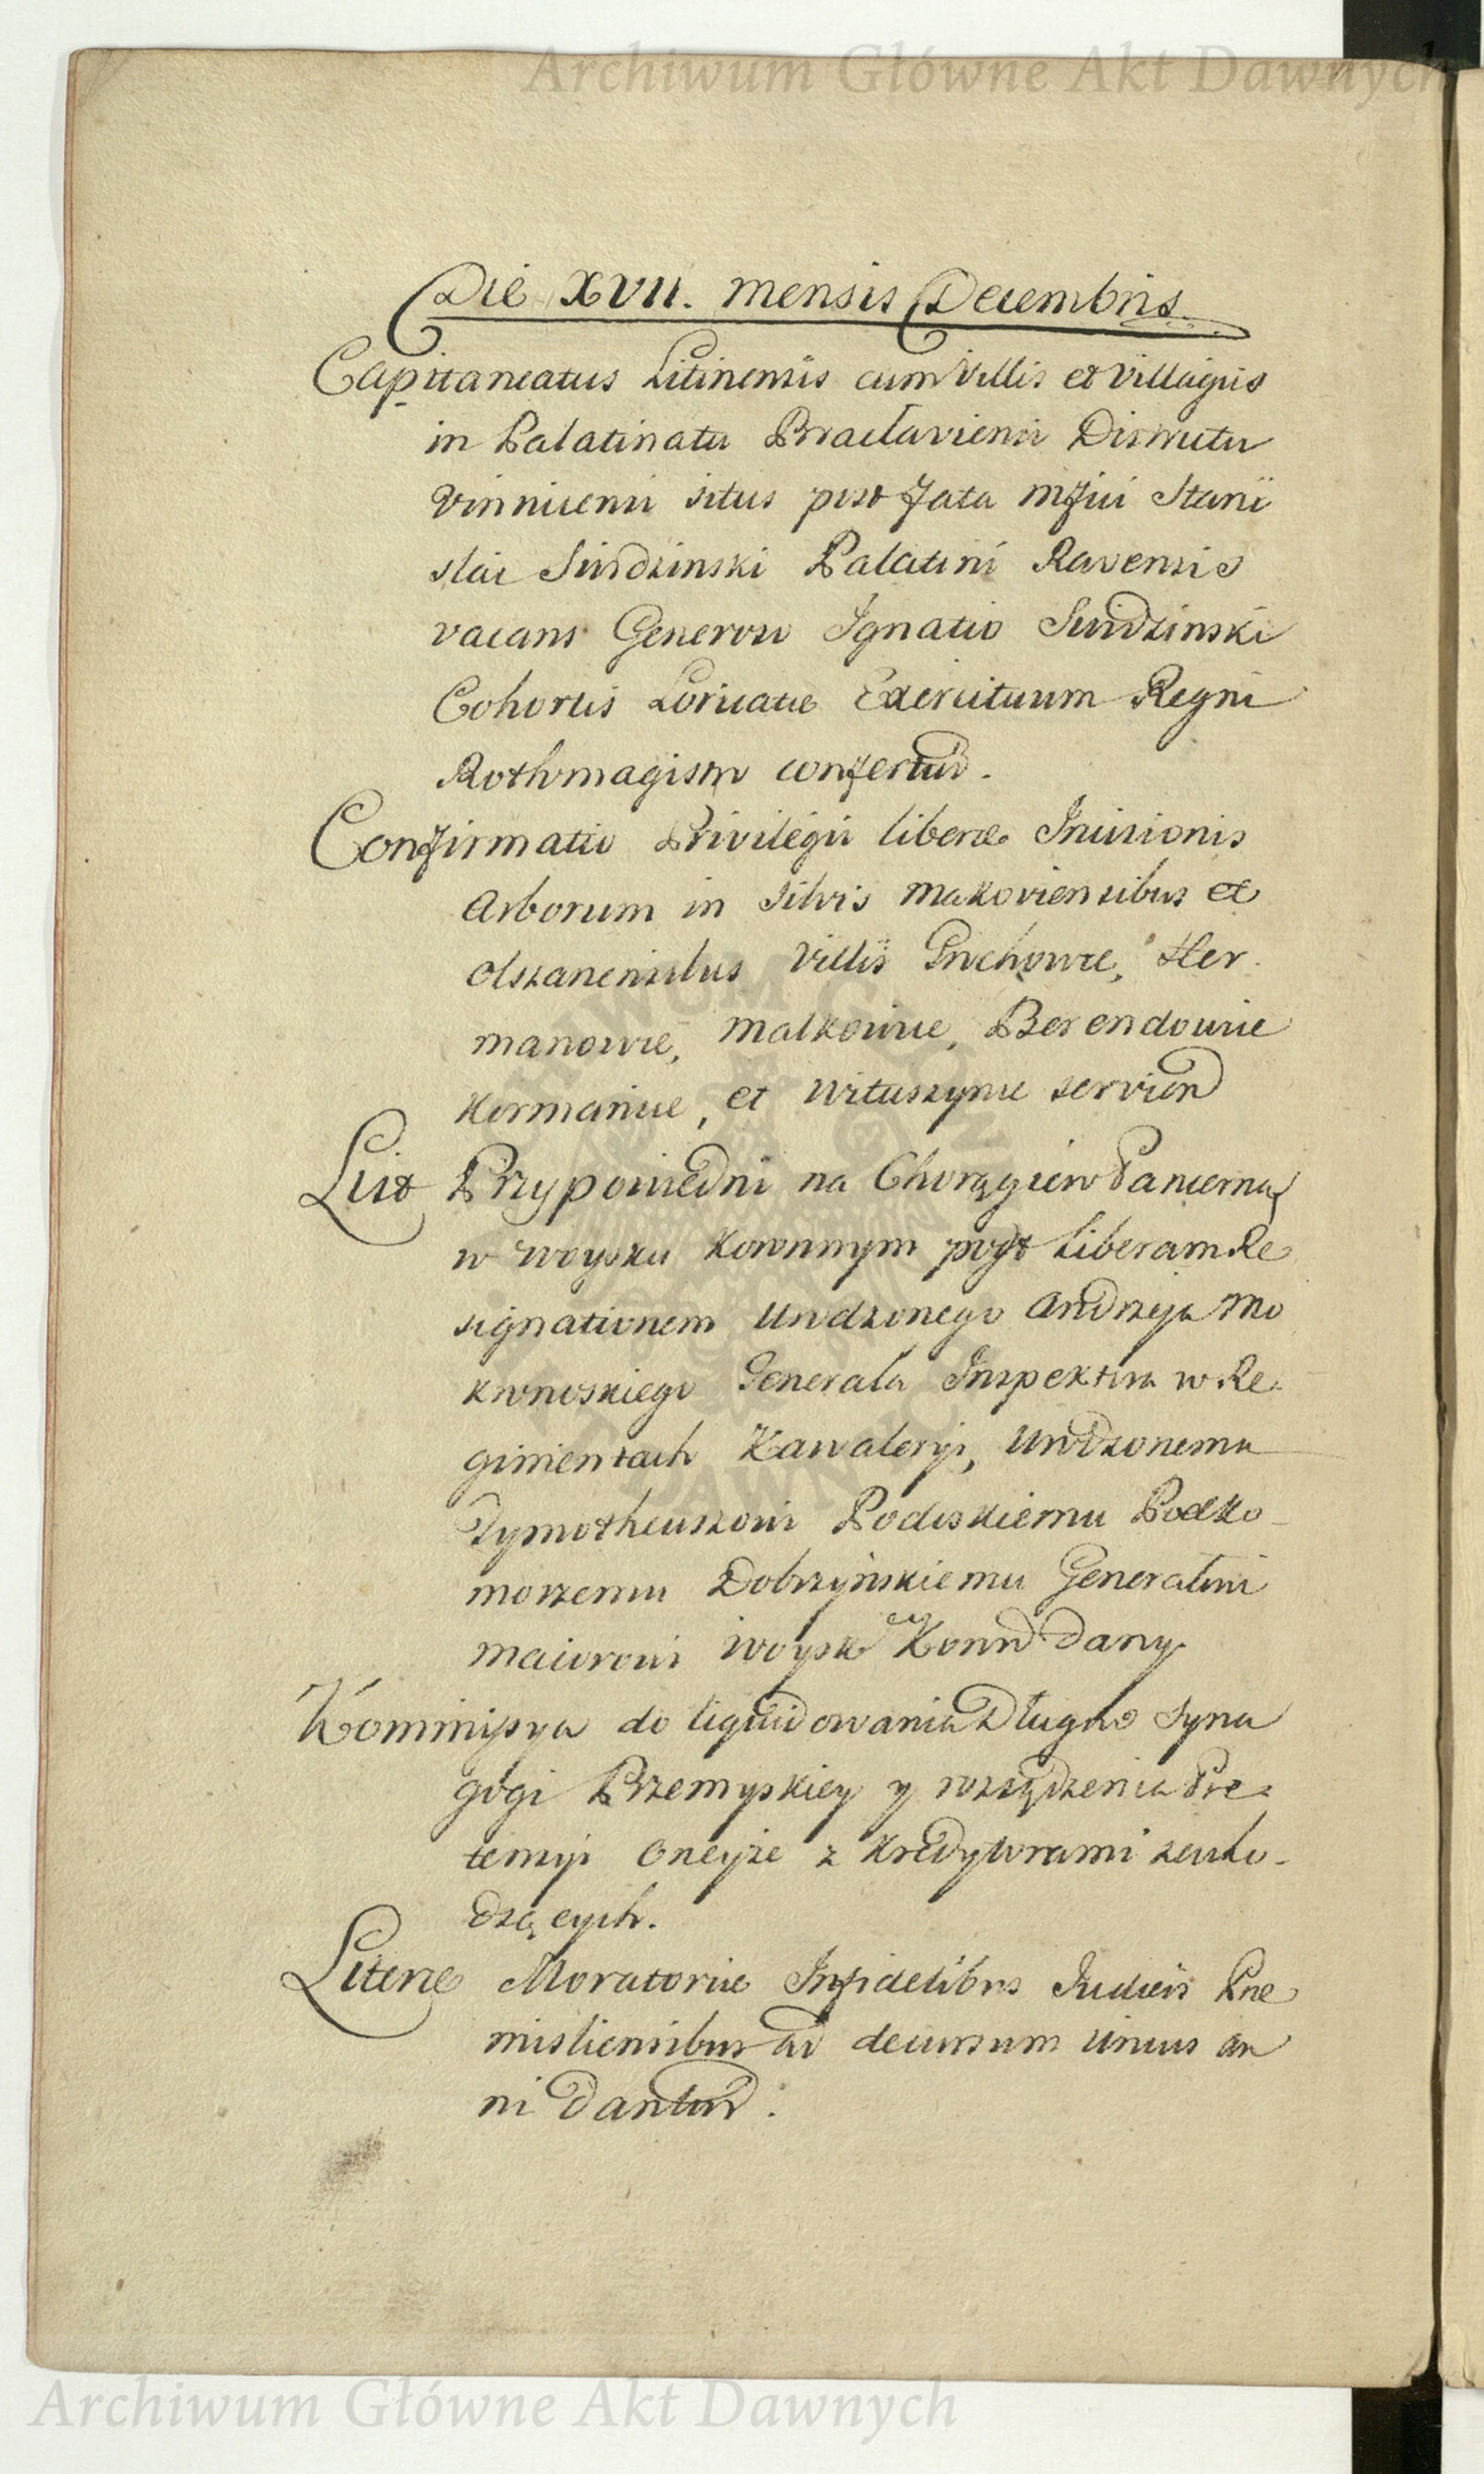 Archiwum Główne Akt Dawnych
Die XVII. mensis Decembris
Capitaneatus Litinensis cum Villis et Villagiis
in Palatinatu Braclaviensi Districtu
Vinnicensi situs post fata Mfici Stani
slai Swidzinski Palatini Ravensis
vacans Generoso Ignatio Swidzinski
Cohortis Loricatæ Exercituum Regni
Rothmagistro confertur.
Confirmatio Privilegii liberæ Incisionis
Arborum in Silvis Makoviensibus et
Olszanensibus Villis Grochowce, Her
manowce, Malkowice, Berendowice
Kormanice, et Witoszynce servien
List Przypowiedni na Chorągiew Pancerną
w Woysku Koronnym post liberam Re
signationem Urodzonego Andrzeja Mo
kronoskiego Generała Inspektora w Re-
gimentach Kawaleryi, Urodzonemu
Tymotheuszowi Podoskiemu Podko-
morzemu Dobrzyńskiemu Generałowi
Maiorowi Woysk Koron dany
Kommissya do liquidowania Długow Syna
gogi Przemyskiey y rozsądzenia Pre-
tensyi oneyże z Kredytorami zacho-
dzących.
Literæ Moratoriæ Infidelibus Judæis Præ
misliensibus ad decursum unius an
ni Dantur.
Archiwum Główne Akt Dawnych